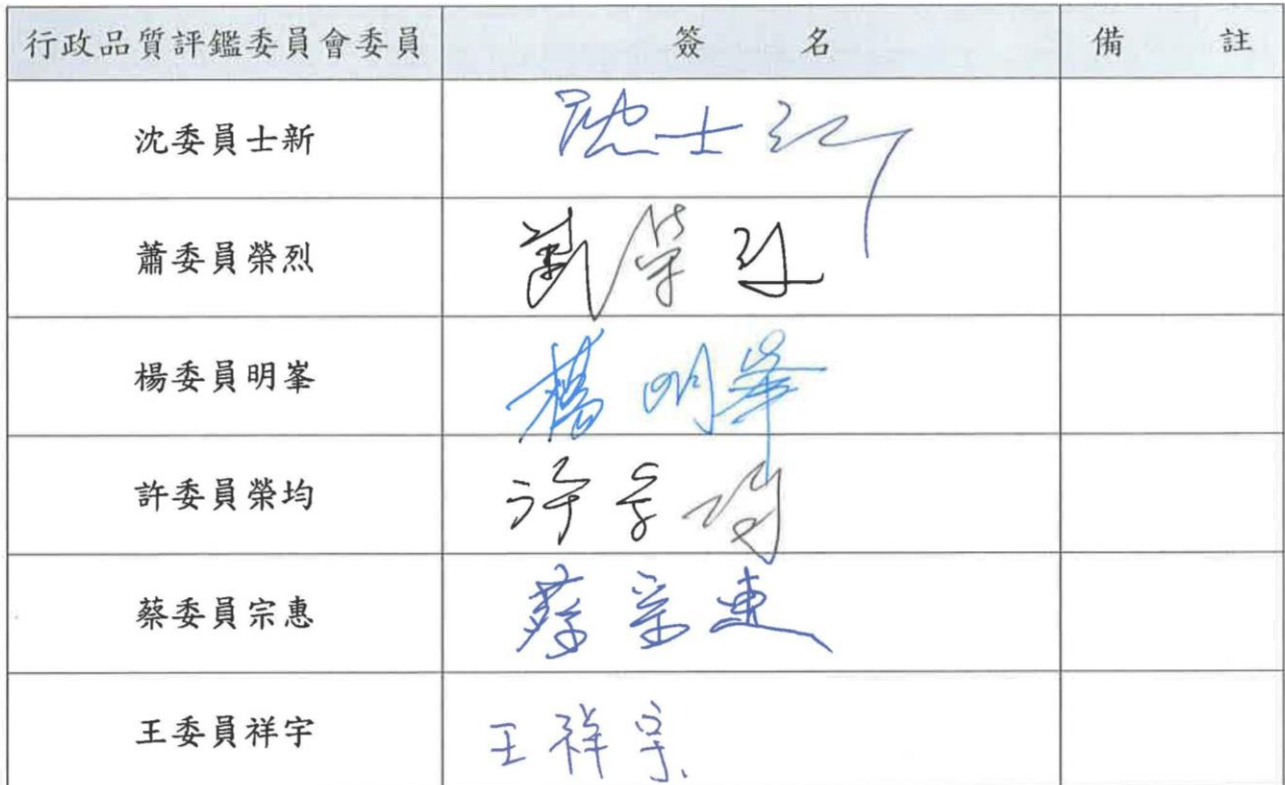 行政品質評鑑委員會委員 簽名 備註
沈委員士新 沈士新
蕭委員榮烈 蕭榮烈
楊委員明峯 楊明峯
許委員榮均 許榮均
蔡委員宗惠 蔡宗惠
王委員祥宇 王祥宇